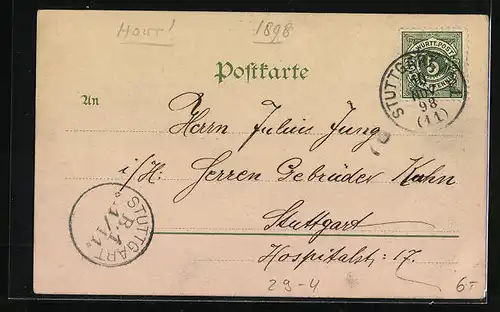 Hout!
1898
Postkarte
WÜRTT. POST
5
STUTTGART
98
(11)
An
Herrn Julius Jung
i/H: Herren Gebrüder Kahn
Stuttgart
Hospitalstr: 17.
STUTTGART.
B.1
29-4
6T